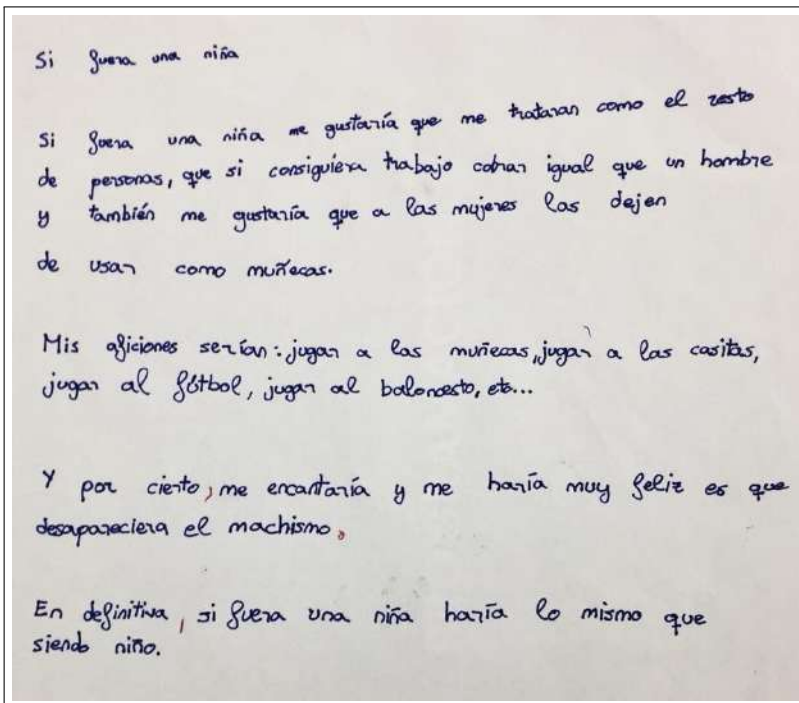 Si fuera una niña
Si fuera una niña me gustaría que me trataran como el resto
de personas, que si consiguiera trabajo cobrar igual que un hombre
y también me gustaría que a las mujeres las dejen
de usar como muñecas.
Mis aficiones serían: jugar a las muñecas, jugar a las casitas,
jugar al fútbol, jugar al baloncesto, etc...
Y por cierto, me encantaría y me haría muy feliz es que
desapareciera el machismo.
En definitiva, si fuera una niña haría lo mismo que
siendo niño.